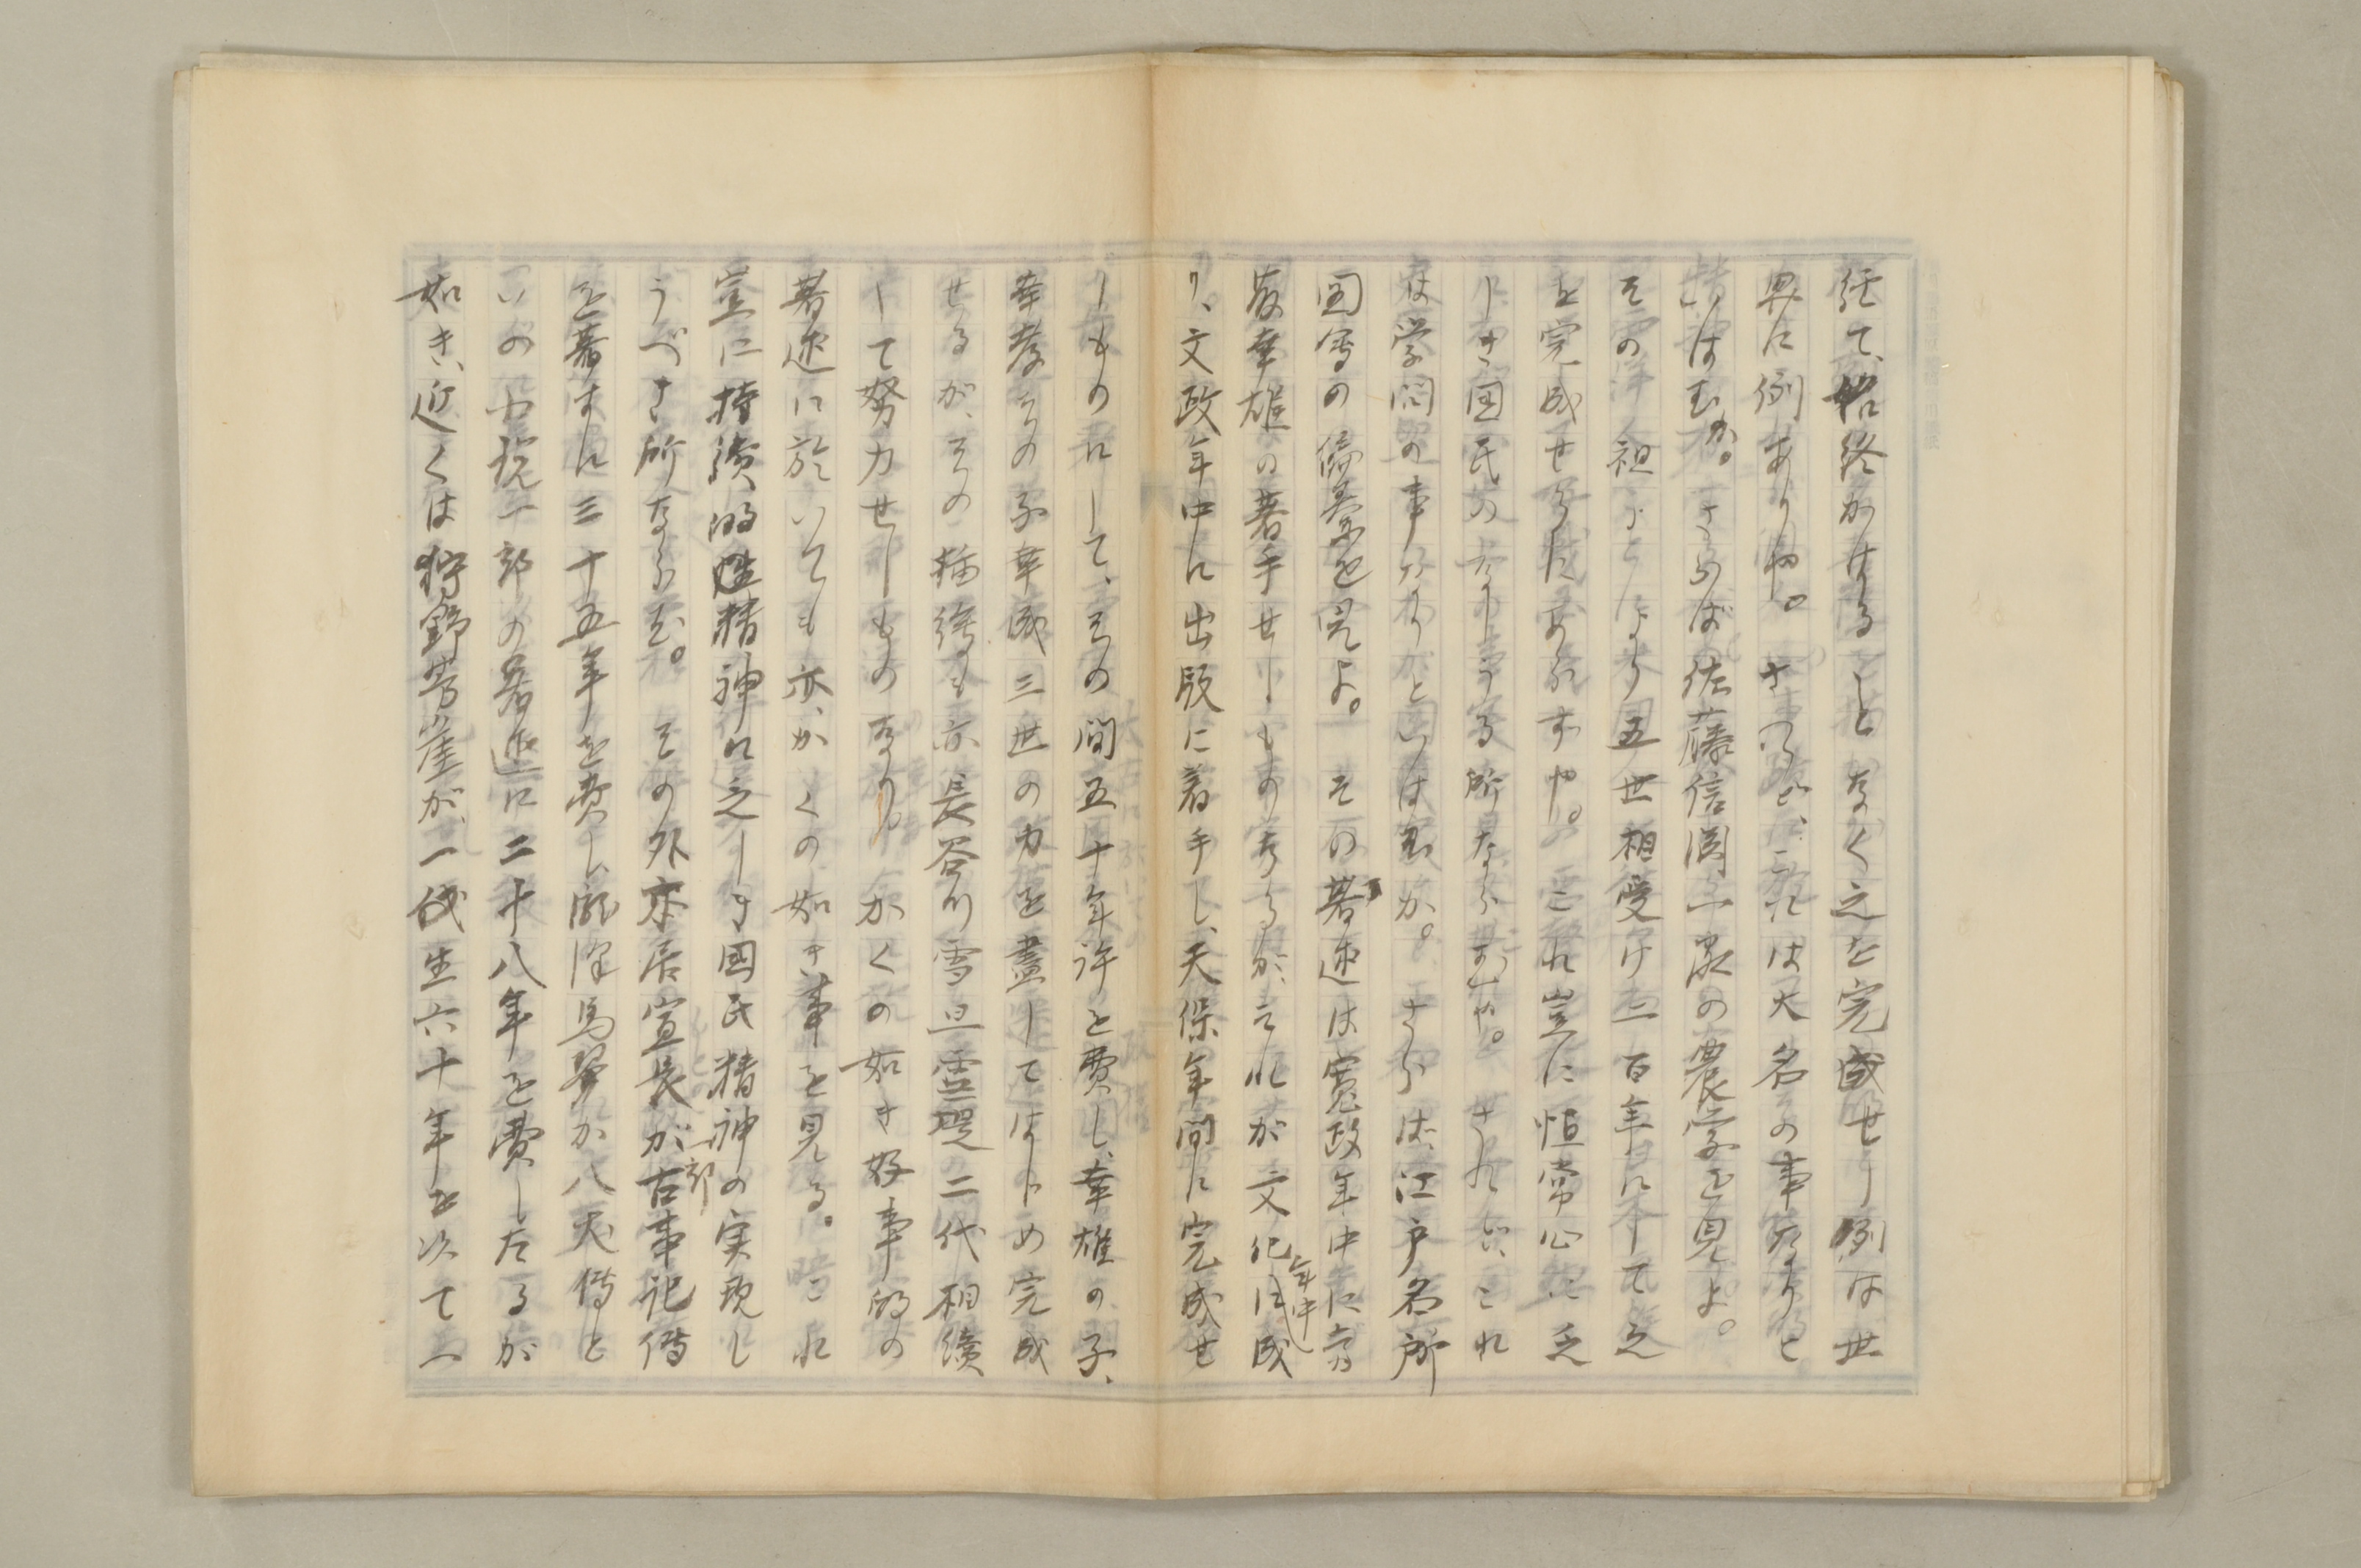 経て、始終かはることなく之を完成せし例は世
界に例ありや。さつれど、これは大名の事なりと
いはむか。さらば佐藤信淵一家の農学を見よ。
その祖より五世相受け一百年にして之
を完成せるにあらずや。これ豈に恒常心に乏
しき国民のなしうる所ならむや。されどこれ
は学問の事なりといはむか。さらば、江戸名所
図会の編纂を見よ。その著述は寛政年中に斎
藤幸雄の著手せしものなるが、それが文化年中に成
り、文政年中に出版に着手し、天保年間に完成せ
しものにして、その間五十年許を費し、幸雄の子、
幸孝その子幸成三世の力を盡してはじめ完成
せるが、その挿絵も亦長谷川雪旦雪堤の二代相續
して努力せしものなり。かくの如き好事的の
著述に於いても亦、かくの如き事を見る。これ
豈に持續的精神に乏しき國民精神の実現し
うべき所ならむ。その外本居宣長が古事記傳一部
を著すに三十五年を費し、瀧澤馬琴が八犬傳と
いふ小説一部の著述に二十八年を費したるが
如き、近くは狩野芳崖が一代生六十年を次て一